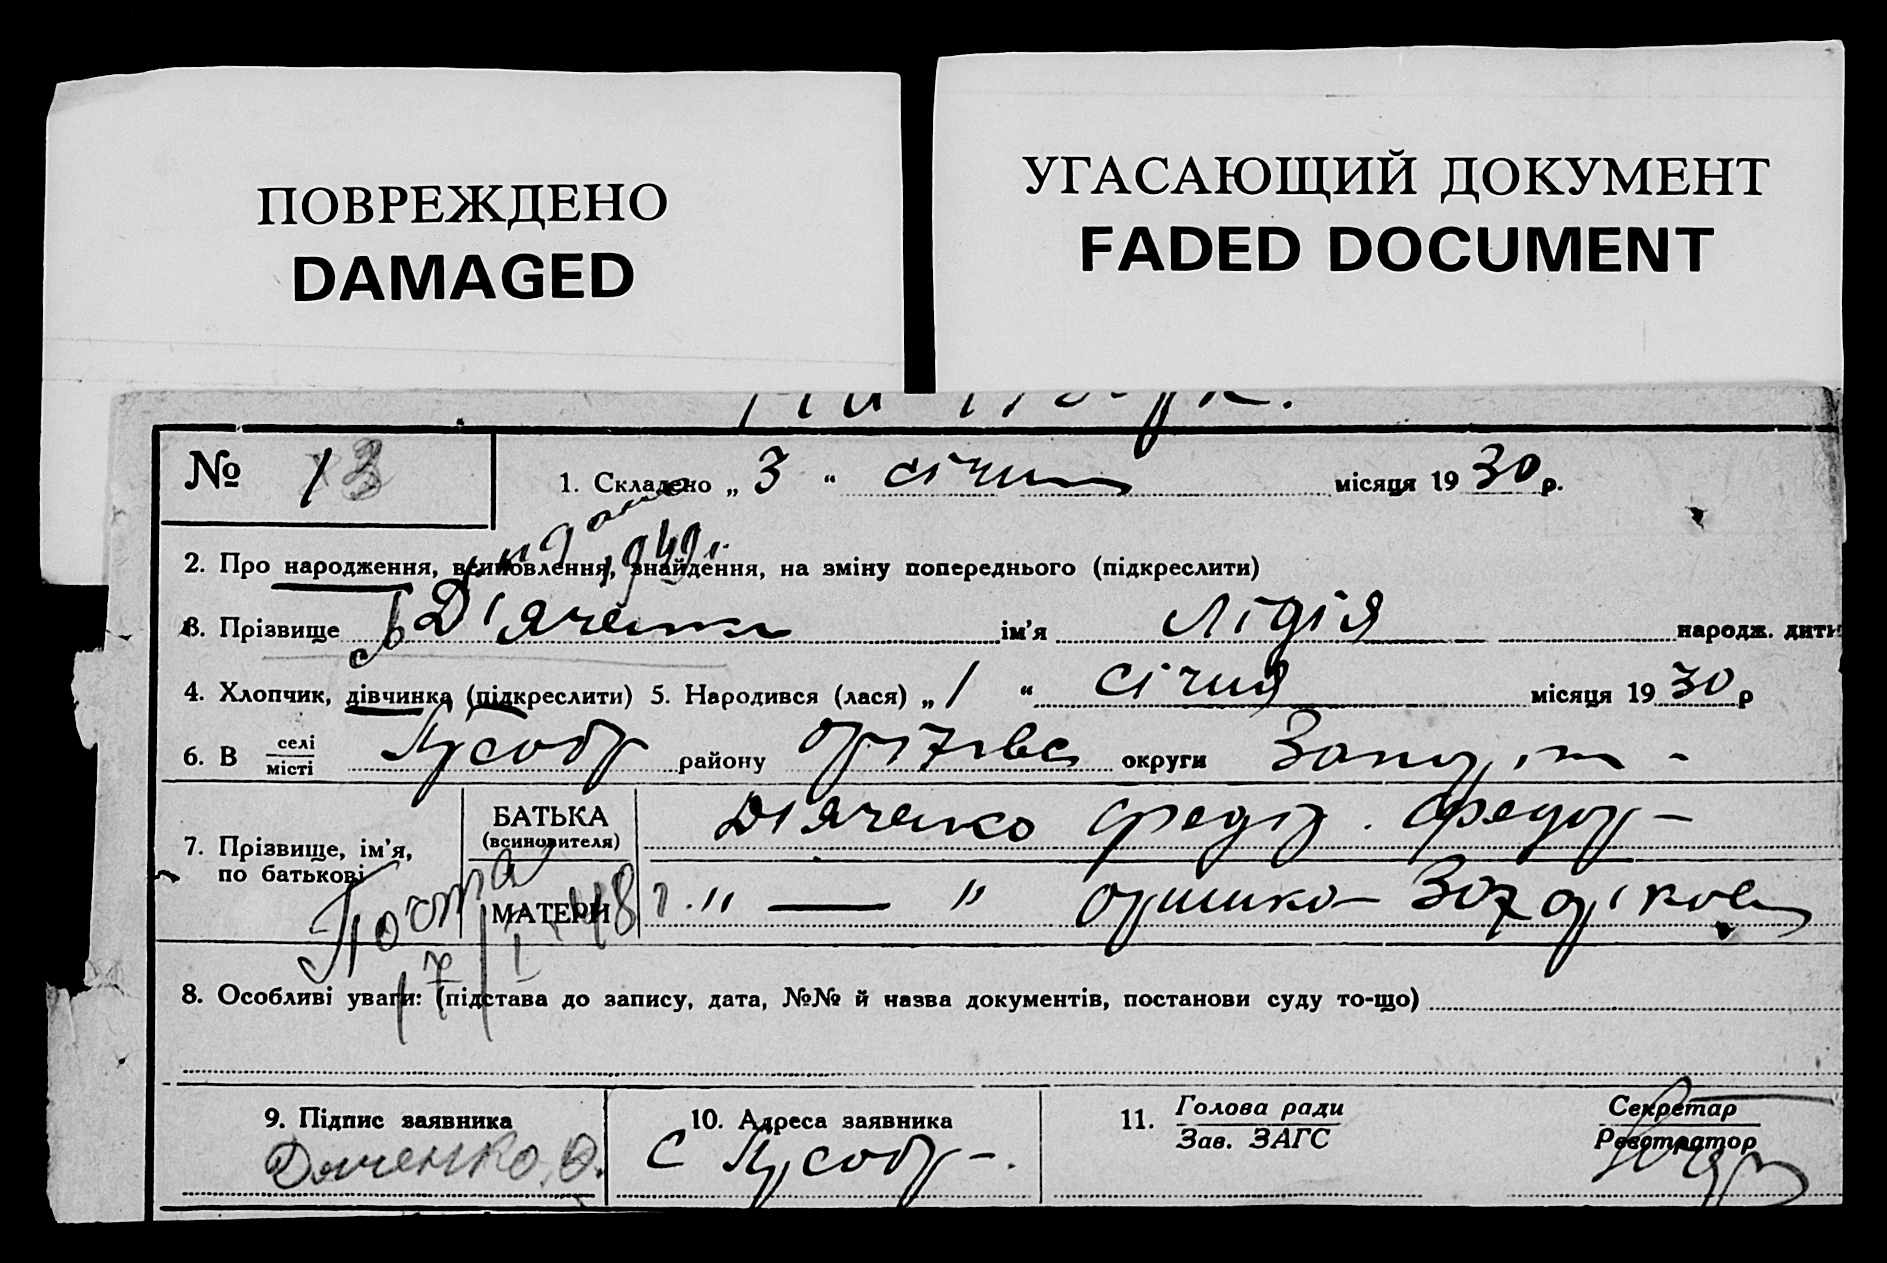 ПОВРЕЖДЕНО
DAMAGED
УГАСАЮЩИЙ ДОКУМЕНТ
FADED DOCUMENT
№ 13
1. Складено „ 3 “ січня місяця 1930 р.
2. Про народження, всиновлення, знайдення, на зміну попереднього (підкреслити)
1949 г.
3. Прізвище Д'яченко ім’я Лідія народж. дити
4. Хлопчик, дівчинка (підкреслити) 5. Народився (лася) „ 1 “ січня місяця 1930 р
6. В селі місті району округи
7. Прізвище, ім’я, по батькові
БАТЬКА (всиновителя) Д'яченко
МАТЕРИ " — "
8. Особливі уваги: (підстава до запису, дата, №№ й назва документів, постанови суду то-що)
9. Підпис заявника 10. Адреса заявника 11. Голова ради Зав. ЗАГС Секретар Реєстратор
Дяченко с